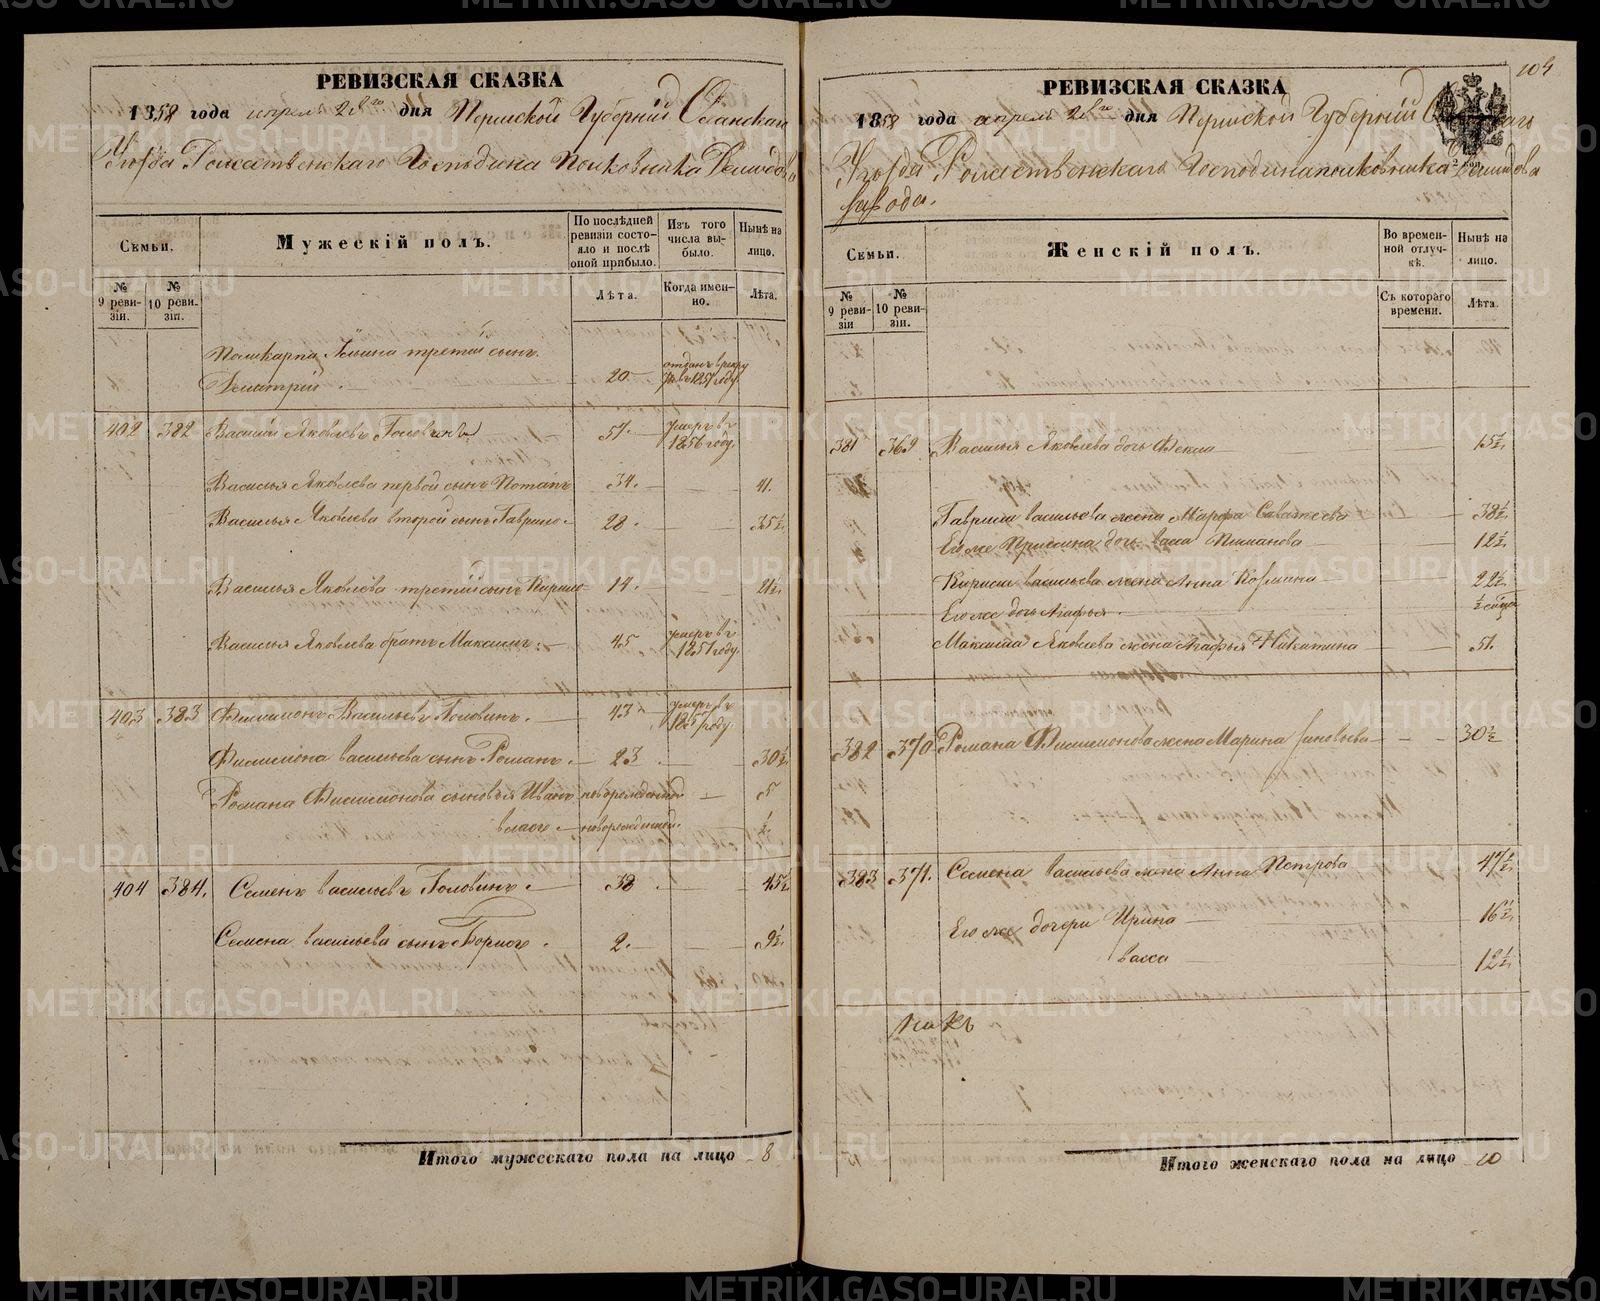 РЕВИЗСКАЯ СКАЗКА
1858 года апреля 2го дня Пермской Губернiи Осинскаго
Уѣзда Рождественскаго Господина Полковника Демидова
Семьи.
Мужескiй полъ.
По послѣдней ревизiи состояло и послѣ оной прибыло.
Изъ того числа выбыло.
Нынѣ на лицо.
№ 9 ревизiи.
№ 10 ревизiи.
Лѣта.
Когда именно.
Лѣта.
Поликарпа Ильина третiй сынъ
Дмитрiй 20 отданъ в рекруты въ 1851 году
402 382 Василiй Яковлевъ Головинъ 51 умеръ въ 1856 году
Василья Яковлева первой сынъ Потапъ 34 41
Василья Яковлева второй сынъ Гаврило 28 35½
Василья Яковлева третiй сынъ Кирило 14 21½
Василья Яковлева братъ Максимъ 45 умеръ въ 1851 году
403 383 Филимонъ Васильевъ Головинъ 43 умеръ въ году
Филимона Васильева сынъ Романъ 23 30½
Романа Филимонова сыновья Иванъ новорожденной 5
Власъ новорожденной ½
404 384 Семенъ Васильевъ Головинъ 38 45½
Семена Васильева сынъ Борисъ 2 9½
Итого мужескаго пола на лицо 8
104
РЕВИЗСКАЯ СКАЗКА
1858 года апреля 2го дня Пермской Губернiи
Уѣзда Рождественскаго Господина полковника Демидова
завода.
Семьи.
Женскiй полъ.
Во временной отлучкѣ.
Нынѣ на лицо.
№ 9 ревизiи
№ 10 ревизiи.
Съ котораго времени.
Лѣта.
381 369 Василья Яковлева дочь Фекла 15½
Гаврила Васильева жена Марфа Савватеева 38½
Его же дочь Васса 12½
Кирила Васильева жена Анна Козмина 22½
Его же дочь Агафья ½
Максима Яковлева жена Агафья Никитина 51
382 370 Романа Филимонова жена Марина Зиновьева 30½
383 371. Семена Васильева жена Анна Петрова 47½
Его же дочери Ирина 16½
Васса 12½
Итого женскаго пола на лицо 10